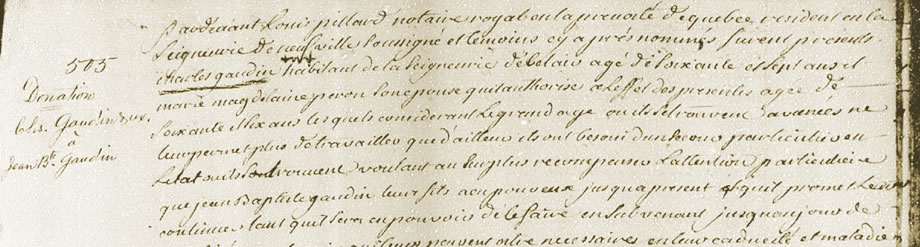 505
Donation
Chs. Gaudin & ux.
à
Jean Bte. Gaudin
Pardevant Louis pillard notaire royal en la prevosté de quebec resident en la
Seigneurie de neufville Soussigné et temoins cy apres nommés furent presents
charles gaudin habitant de la Seigneurie de belair agé de Soixante et Sept ans et
marie magdelaine peron Son epouse qu'il authorise a l'effet des presentes agée de
Soixante et Six ans lesquels considerant Le grand age ou ils Se trouvent avancés ne
leur permet plus de travailler que d'ailleurs ils ont besoin d'un Secours particulier en
L'etat ou ils Se trouvent voulant au Surplus recompenser L'attention particuliere
que jean Baptiste gaudin leur fils a eu pour eux jusqu'a present et qu'il promet Leur
continuer tant qu'il Sera en pouvoir de le faire en Subvenant jusqu'au jour de
pouvoit estre necessaires en leur caducité et maladie